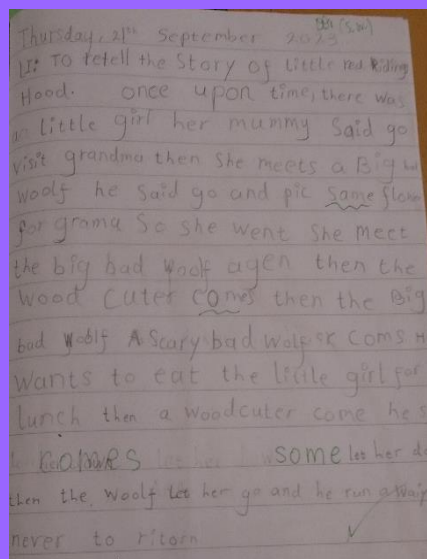 Thursday, 21st September 2023 (S.W)
LI: TO retell the Story of Little red Riding
Hood. once upon time, there was
a little girl her mummy Said go
visit grandma then She meets a Big bad
woolf he Said go and pic Same flower
for grama So she went She meet
the big bad woolf agen then the
wood cuter comes then the Big
bad woolf A Scary bad wolf coms
wants to eat the little girl for
lunch then a woodcuter come he s
comes some let her
then the woolf let her go and he run away
never to ritorn